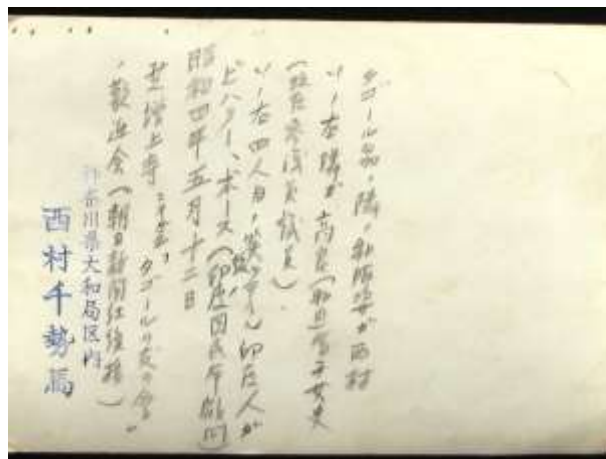 タゴール翁ノ隣ノ和服姿が西村
ソノ右隣が高良(和田)富子女史
(現在参議員議員)
ソノ右四人目ノ笑ッテイル印度人が
ビハリー、ボース(印度国民軍
昭和四年五月十二日
芝増上寺ニオケル、タゴールノ友の会"
歓迎会(朝日新聞社後援)
神奈川県大和局区内
西村千勢